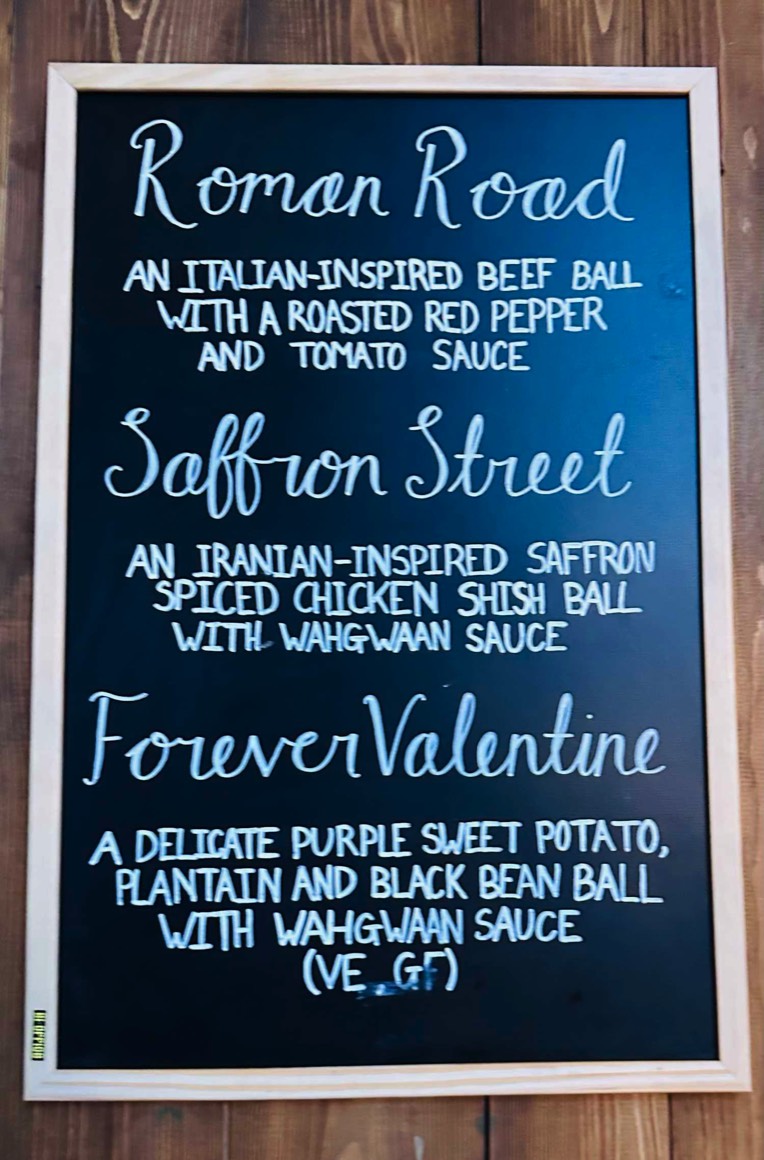 Roman Road
AN ITALIAN-INSPIRED BEEF BALL
WITH A ROASTED RED PEPPER
AND TOMATO SAUCE
Saffron Street
AN IRANIAN-INSPIRED SAFFRON
SPICED CHICKEN SHISH BALL
WITH WAHGWAAN SAUCE
Forever Valentine
A DELICATE PURPLE SWEET POTATO,
PLANTAIN AND BLACK BEAN BALL
WITH WAHGWAAN SAUCE
(VE GF)